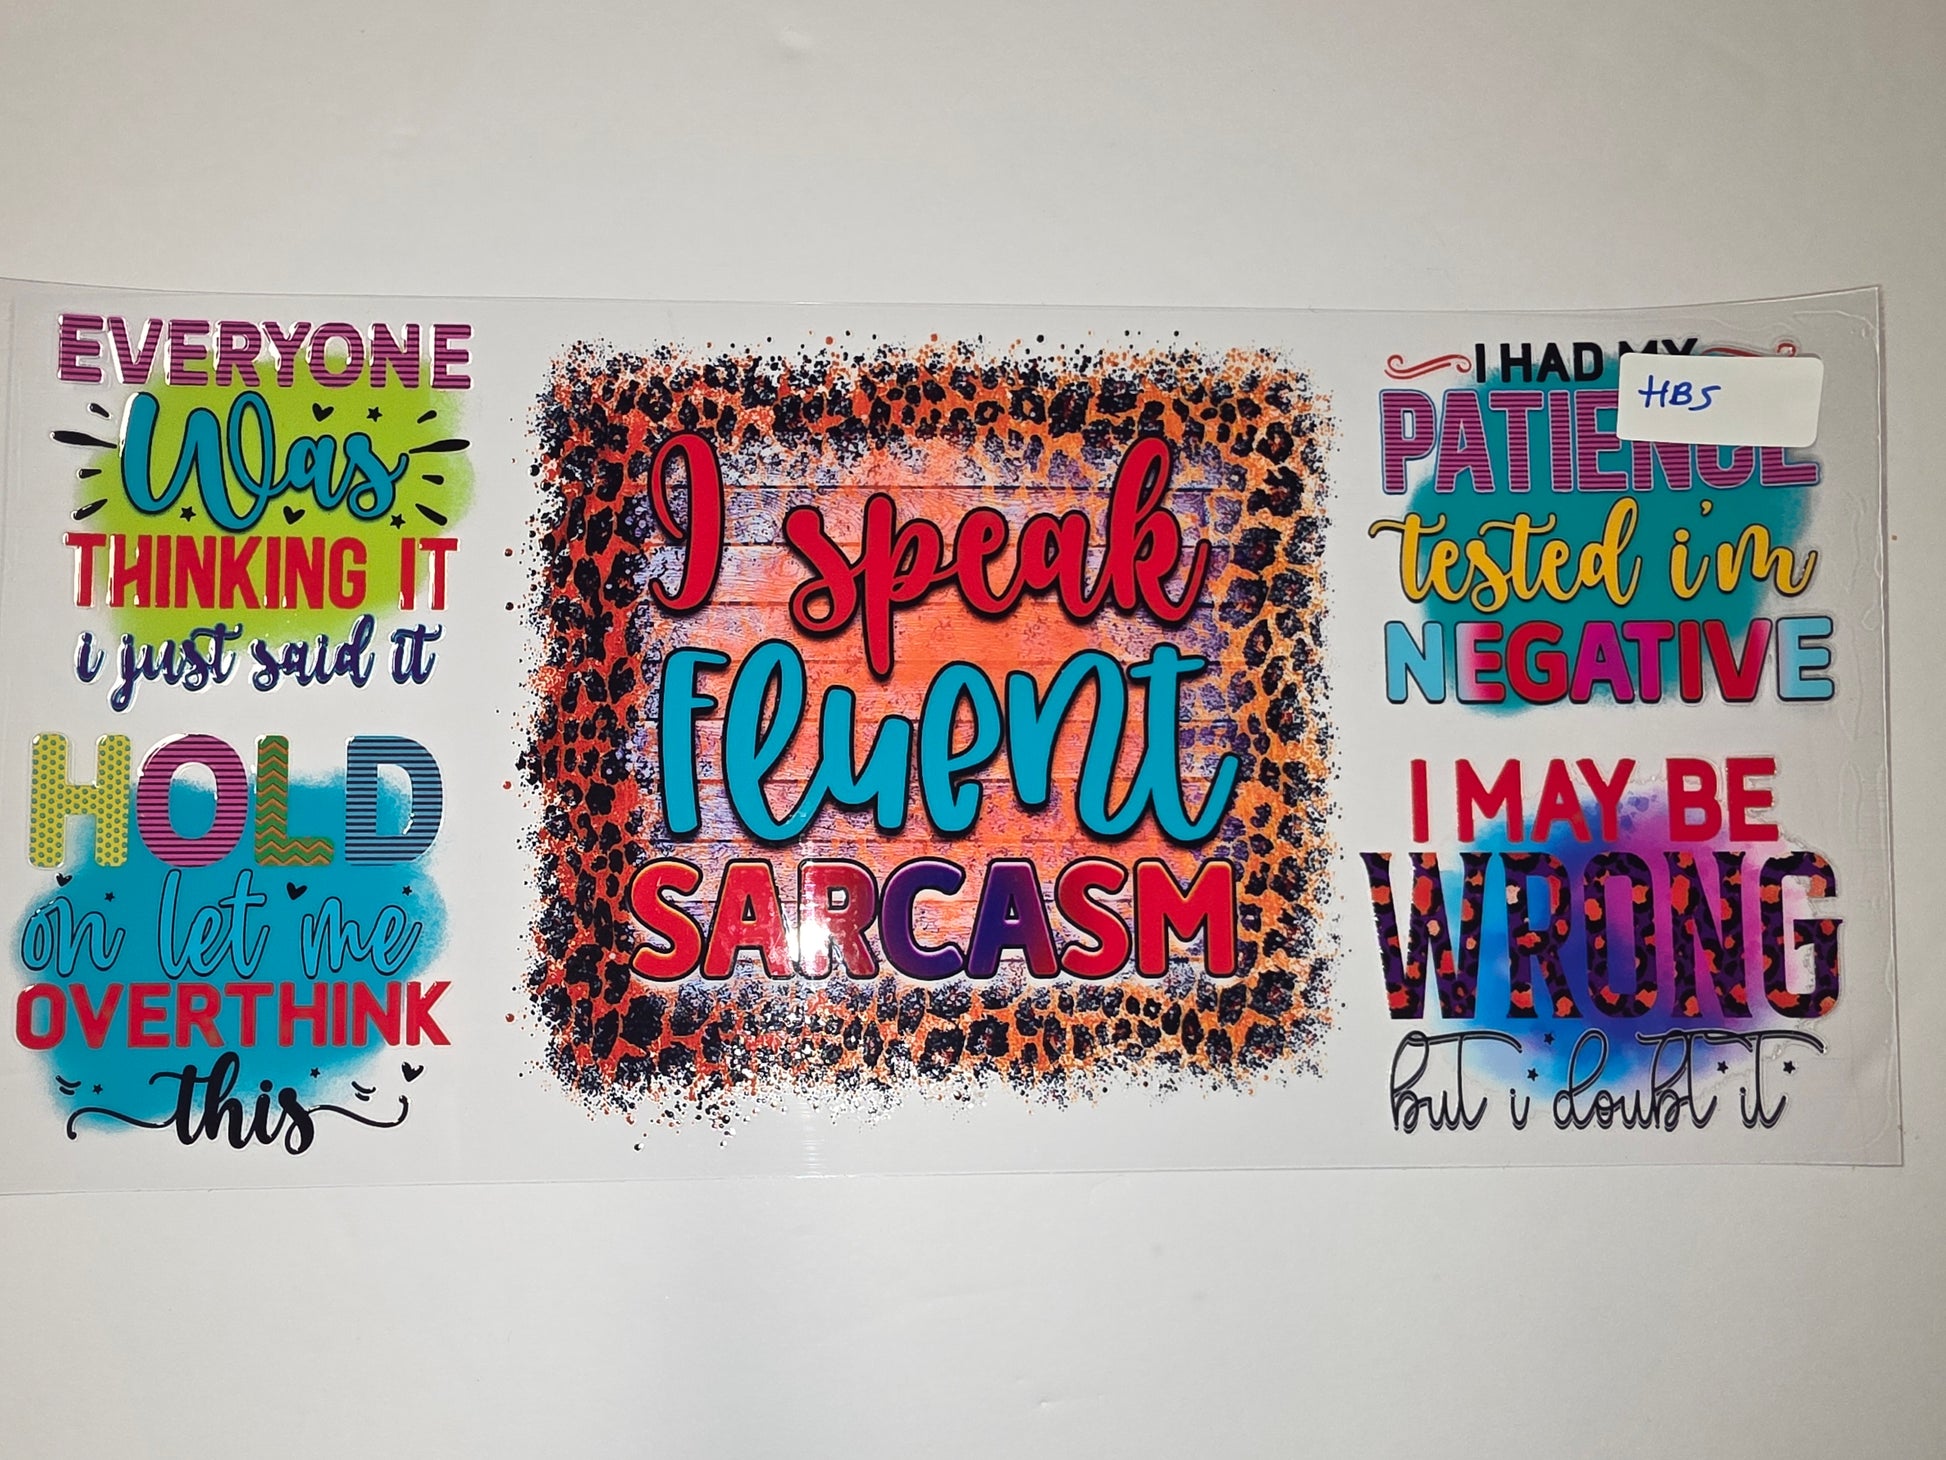 EVERYONE
Was
THINKING IT
i just said it
HOLD
on let me
OVERTHINK
this
I speak
Fluent
SARCASM
I HAD MY
PATIENCE
tested i'm
NEGATIVE
HBS
I MAY BE
WRONG
but i doubt it